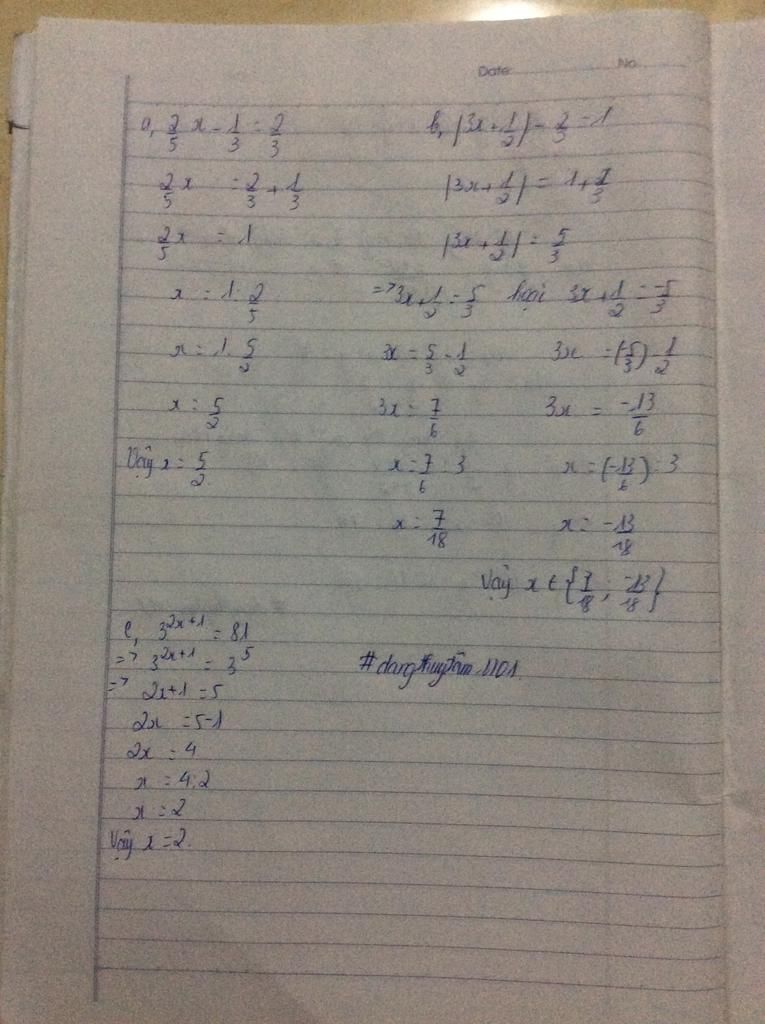 Date No
a, 2/5 x - 1/3 = 2/3
2/5 x = 2/3 + 1/3
2/5 x = 1
x = 1 : 2/5
x = 1 . 5/2
x = 5/2
Vậy x = 5/2
b, |3x + 1/2| - 2/3 = 1
|3x + 1/2| = 1 + 2/3
|3x + 1/2| = 5/3
=> 3x + 1/2 = 5/3 hoặc 3x + 1/2 = -5/3
3x = 5/3 - 1/2 3x = (-5/3) - 1/2
3x = 7/6 3x = -13/6
x = 7/6 : 3 x = (-13/6) : 3
x = 7/18 x = -13/18
Vậy x ∈ {7/18 ; -13/18}
c, 3^(2x+1) = 81
=> 3^(2x+1) = 3^5
=> 2x+1 = 5
2x = 5-1
2x = 4
x = 4:2
x = 2
Vậy x = 2.
#dangthuytam1101